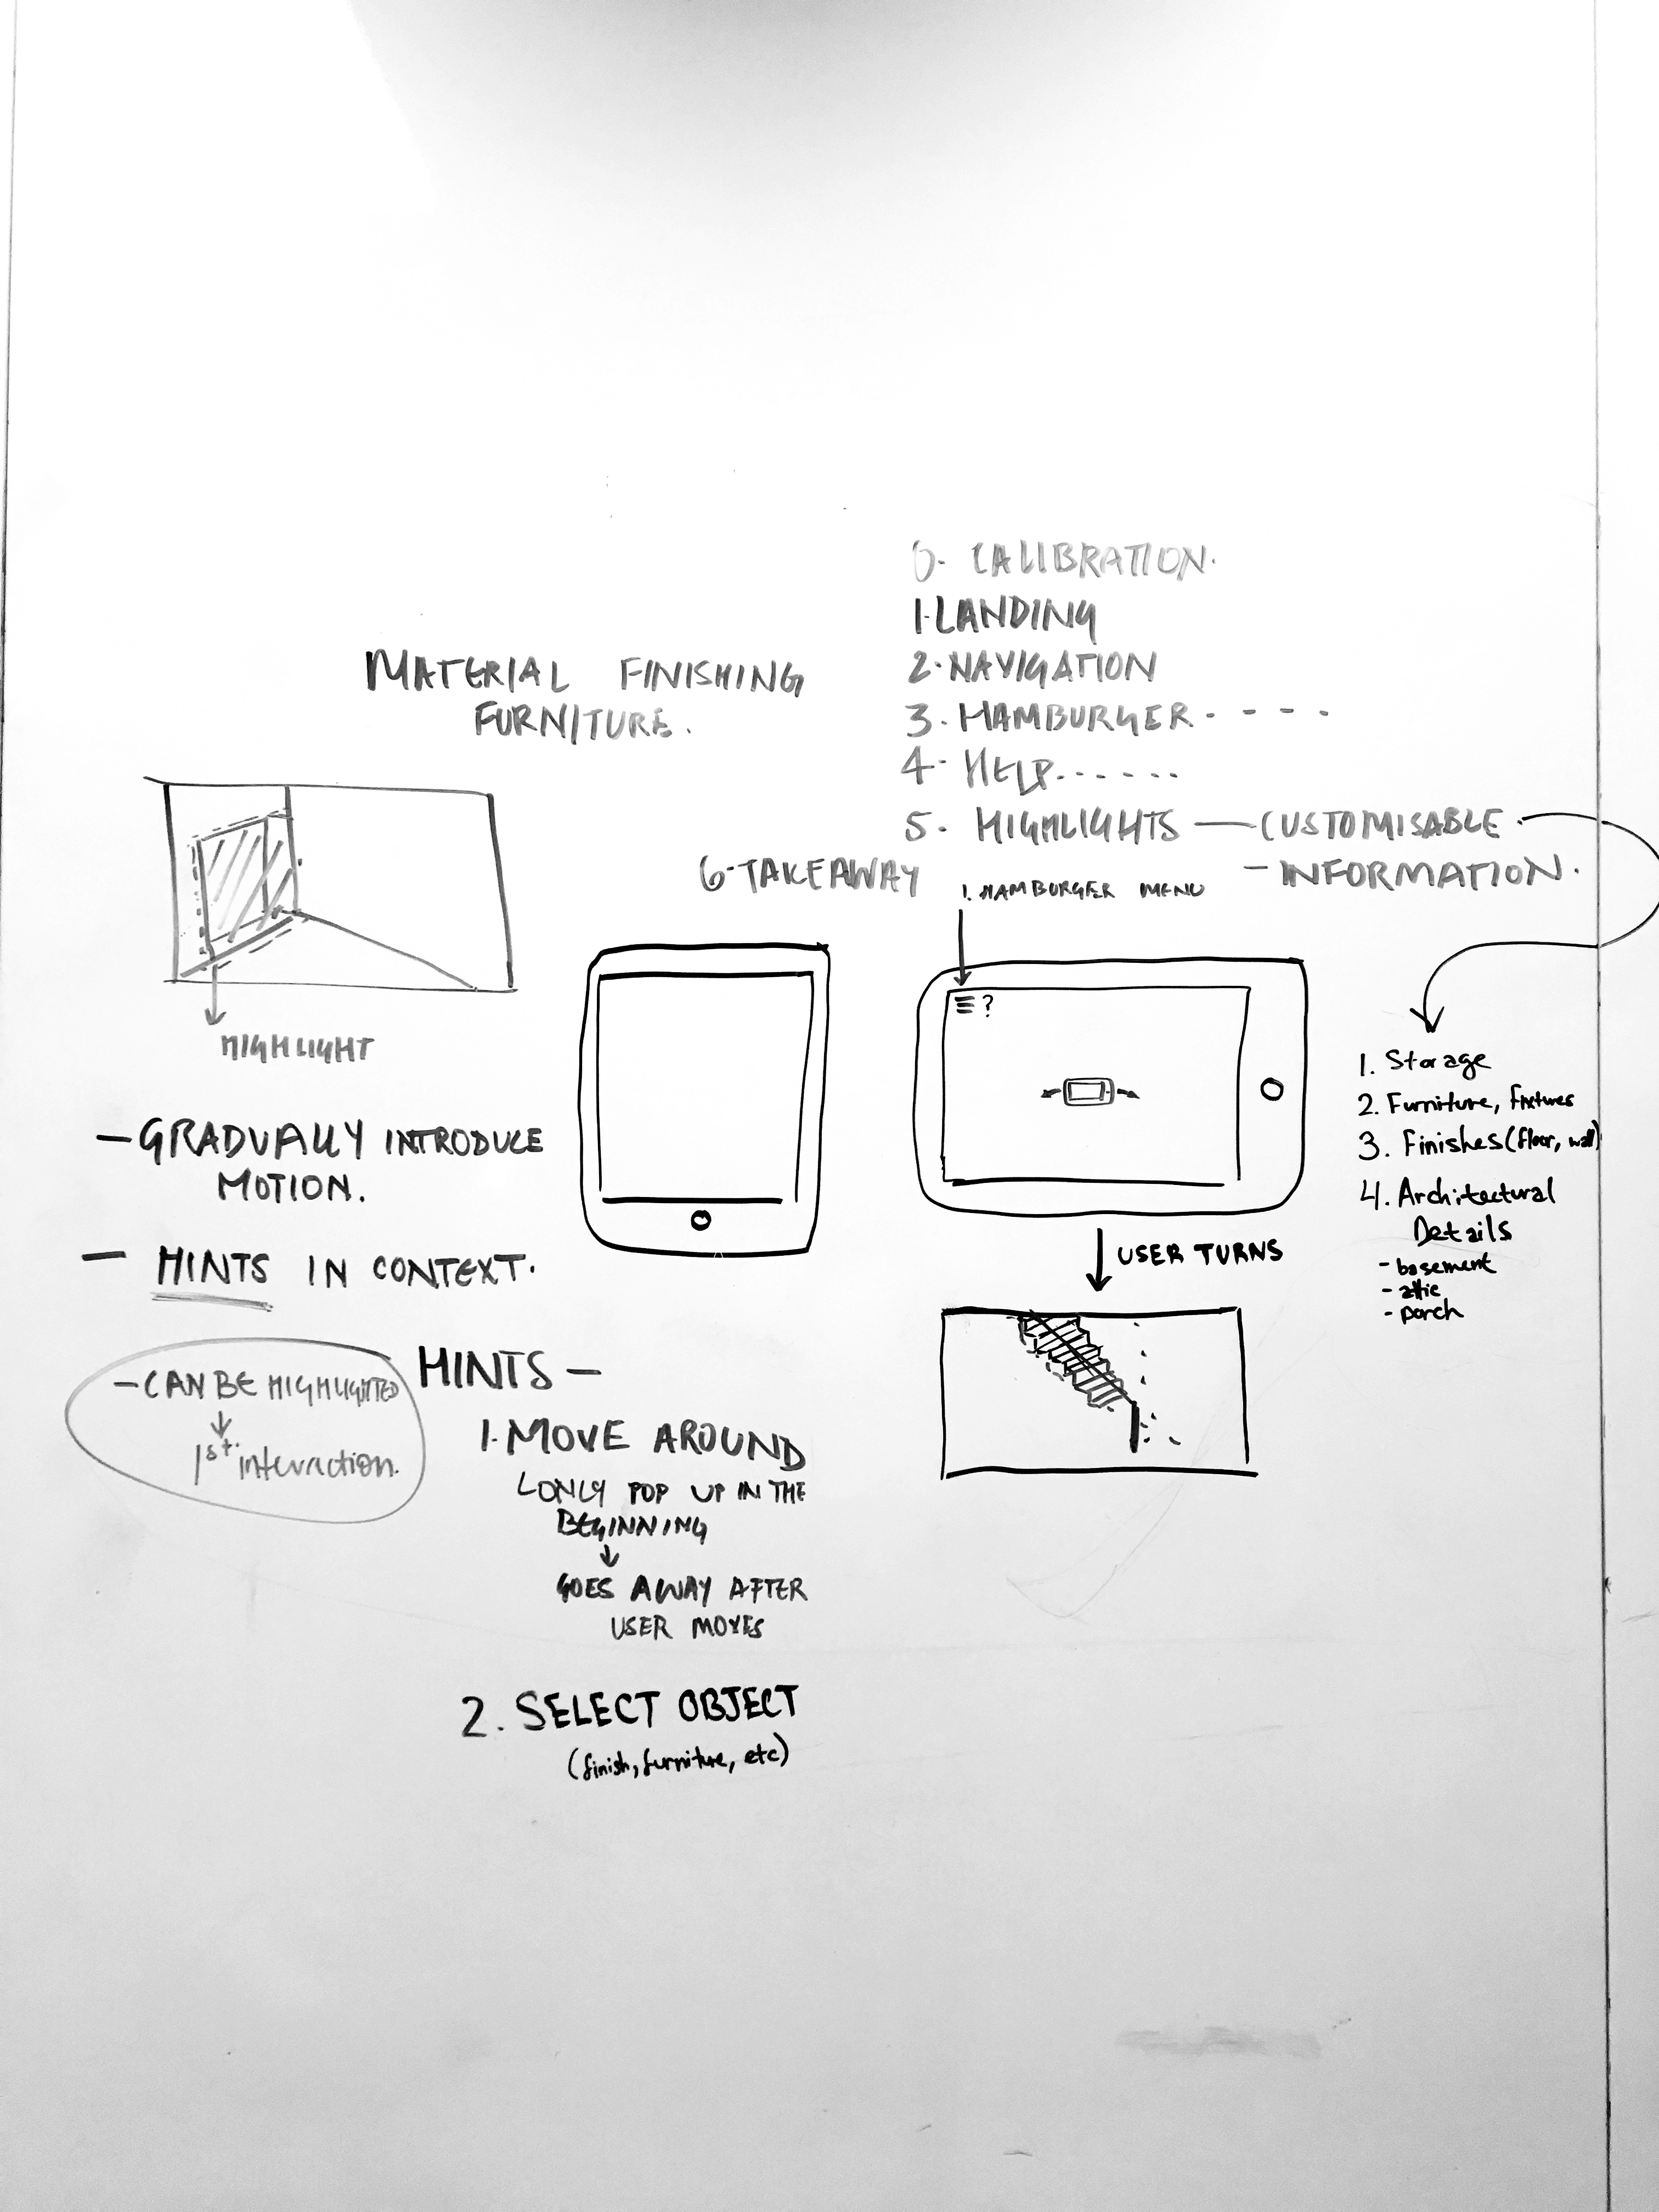 0. CALIBRATION.
1. LANDING
2. NAVIGATION
3. HAMBURGER - - - -
4. HELP......
5. HIGHLIGHTS — CUSTOMISABLE
- INFORMATION.
6. TAKEAWAY
MATERIAL FINISHING
FURNITURE.
HIGHLIGHT
1. HAMBURGER MENU
?
USER TURNS
1. Storage
2. Furniture, fixtures
3. Finishes (floor, wall)
4. Architectural
Details
- basement
- attic
- porch
- GRADUALLY INTRODUCE
MOTION.
- HINTS IN CONTEXT.
- CAN BE HIGHLIGHTED
1st interaction.
HINTS -
1. MOVE AROUND
ONLY POP UP IN THE
BEGINNING
GOES AWAY AFTER
USER MOVES
2. SELECT OBJECT
(finish, furniture, etc)